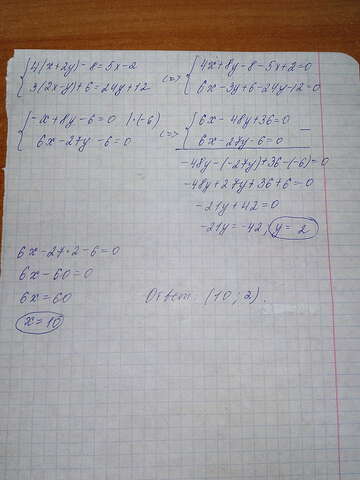 {4(x+2y)-8=5x-2 <=> {4x+8y-8-5x+2=0
{3(2x-y)+6=24y+12 {6x-3y+6-24y-12=0
{-x+8y-6=0 |·(-6) <=> {6x-48y+36=0
{6x-27y-6=0 {6x-27y-6=0 -
-48y-(-27y)+36-(-6)=0
-48y+27y+36+6=0
-21y+42=0
-21y=-42, y=2
6x-27·2-6=0
6x-60=0
6x=60
x=10
Ответ: (10; 2).